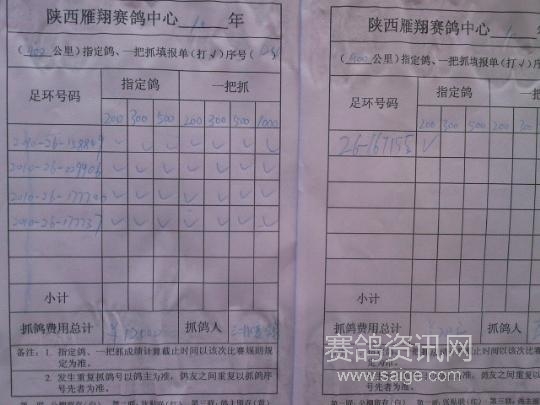 陕西雁翔赛鸽中心 10 年
（400公里）指定鸽、一把抓填报单（打√）序号（
足环号码 指定鸽 一把抓
200 300 500 200 300 500 1000
2010-26-158849 √ √ √ √ √ √ √
2010-26-029906 √ √ √ √ √ √ √
2010-26-177720 √ √ √ √ √ √ √
2010-26-177737 √ √ √ √ √ √ √
小计
抓鸽费用总计 抓鸽人
备注：1. 指定鸽、一把抓成绩计算截止时间以该次比赛规则规
定为准。
2. 发生重复抓鸽号以鸽主为准，鸽友之间重复以抓鸽序
号先者为准。
陕西雁翔赛鸽中心 年
（400公里）指定鸽、一把抓填报单（打√）序
足环号码 指定鸽 一把
200 300 500 200 300 500
26-167155 √
小计
抓鸽费用总计 抓鸽人
备注：1. 指定鸽、一把抓成绩计算截止时间以该次比赛
定为准。
2. 发生重复抓鸽号以鸽主为准，鸽友之间重复以
号先者为准。
赛鸽资讯网
www.saige.com